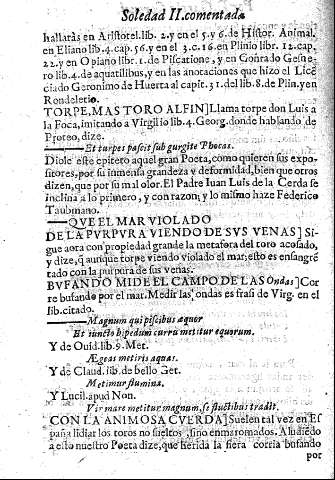 Soledad II. comentada
hallaràs en Aristotel. lib. 2. y en el 5. y 6. de Histor. Animal.
en Eliano lib. 4. cap. 56. y en el 3. c. 16. en Plinio libr. 12. cap.
22. y en Opiano libr. 1. de Piscatione, y en Conrado Gesne-
ro lib. 4. de aquatilibus, y en las anotaciones que hizo el Licē
ciado Geronimo de Huerta al capit. 31. del lib. 8. de Plin. y en
Rondeletio.
TORPE, MAS TORO AL FIN] Llama torpe don Luis a
la Foca, imitando a Virgilio lib. 4. Georg. donde hablando de
Proteo, dize.
Et turpes pascit sub gurgite Phocas.
Diole este epiteto aquel gran Poeta, como quieren sus expo-
sitores, por su inmensa grandeza y deformidad, bien que otros
dizen, que por su mal olor. El Padre Iuan Luis de la Cerda se
inclina a lo primero, y con razon; y lo mismo haze Federico
Taubmano.
QVE EL MAR VIOLADO
DE LA PVRPVRA VIENDO DE SVS VENAS] Si-
gue aora con propiedad grande la metafora del toro acosado,
y dize, q̃ aunque torpe viendo violado el mar; esto es ensangrē
tado con la purpura de sus venas.
BVFANDO MIDE EL CAMPO DE LAS Ondas] Cor
re bufando por el mar. Medir las ondas es fras de Virg. en el
lib. citado.
Magnum qui piscibus æquor
Et iuncto bipedum curru metitur equorum.
Y de Ouid. lib. 9. Met.
Ægeas metiris aquas.
Y de Claud. lib. de bello Get.
Metimur flumina.
Y Lucil. apud Non.
Vir mare metitur magnum, se fluctibus tradit.
CON LA ANIMOSA CVERDA] Suelen tal vez en Es
paña lidiar los toros no sueltos, sino enmaromados. Aludiēdo
a esto nuestro Poeta dize, que herida la fiera corria bufando
por